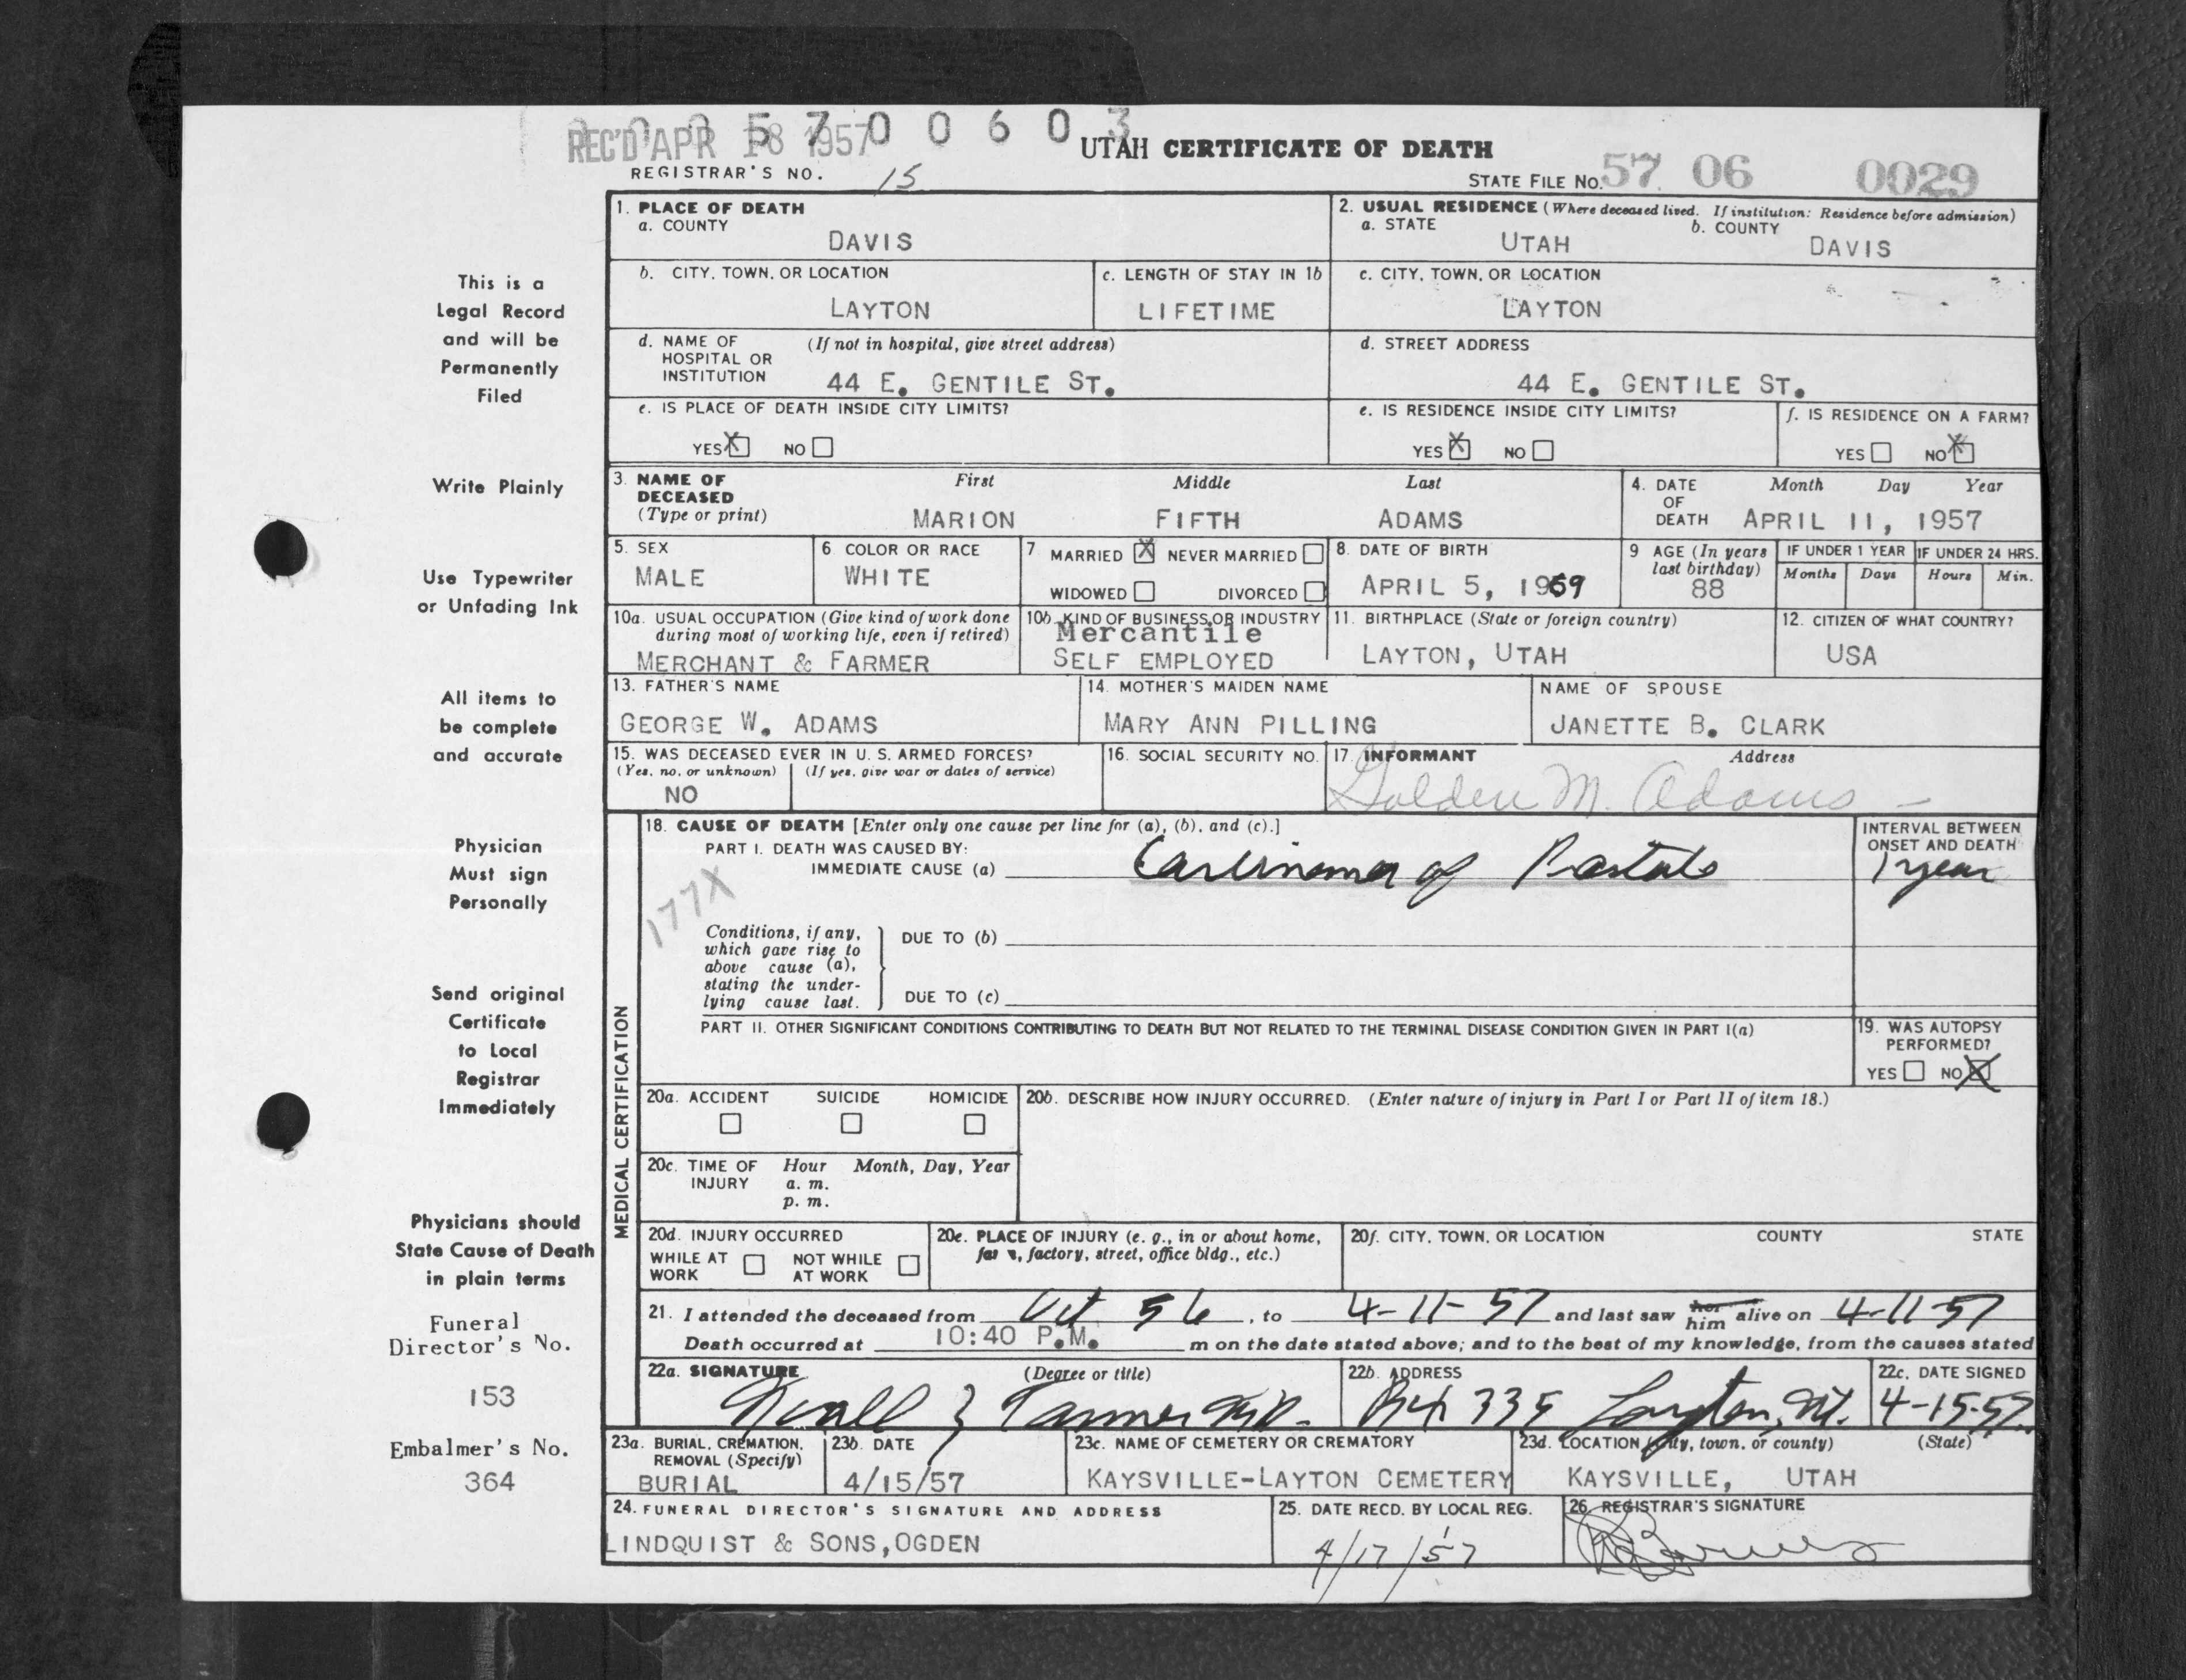 0 0 0 5 7 0 0 6 0 3
REC'D APR 18 1957
UTAH CERTIFICATE OF DEATH
REGISTRAR'S NO. 15
STATE FILE NO. 57 06 0029
This is a
Legal Record
and will be
Permanently
Filed
Write Plainly
Use Typewriter
or Unfading Ink
All items to
be complete
and accurate
Physician
Must sign
Personally
Send original
Certificate
to Local
Registrar
Immediately
Physicians should
State Cause of Death
in plain terms
Funeral
Director's No.
153
Embalmer's No.
364
1. PLACE OF DEATH
a. COUNTY
DAVIS
2. USUAL RESIDENCE (Where deceased lived. If institution: Residence before admission)
a. STATE b. COUNTY
UTAH DAVIS
b. CITY, TOWN, OR LOCATION
LAYTON
c. LENGTH OF STAY IN 1b
LIFETIME
c. CITY, TOWN, OR LOCATION
LAYTON
d. NAME OF (If not in hospital, give street address)
HOSPITAL OR
INSTITUTION 44 E. GENTILE ST.
d. STREET ADDRESS
44 E. GENTILE ST.
e. IS PLACE OF DEATH INSIDE CITY LIMITS?
YES X NO
e. IS RESIDENCE INSIDE CITY LIMITS?
YES X NO
f. IS RESIDENCE ON A FARM?
YES NO X
3. NAME OF First Middle Last
DECEASED
(Type or print) MARION FIFTH ADAMS
4. DATE Month Day Year
OF
DEATH APRIL 11, 1957
5. SEX
MALE
6 COLOR OR RACE
WHITE
7 MARRIED X NEVER MARRIED
WIDOWED DIVORCED
8. DATE OF BIRTH
APRIL 5, 1969
9 AGE (In years
last birthday)
88
IF UNDER 1 YEAR
Months Days
IF UNDER 24 HRS.
Hours Min.
10a. USUAL OCCUPATION (Give kind of work done
during most of working life, even if retired)
MERCHANT & FARMER
10b. KIND OF BUSINESS OR INDUSTRY
Mercantile
SELF EMPLOYED
11. BIRTHPLACE (State or foreign country)
LAYTON, UTAH
12. CITIZEN OF WHAT COUNTRY?
USA
13. FATHER'S NAME
GEORGE W. ADAMS
14. MOTHER'S MAIDEN NAME
MARY ANN PILLING
NAME OF SPOUSE
JANETTE B. CLARK
15. WAS DECEASED EVER IN U. S. ARMED FORCES?
(Yes, no, or unknown) (If yes, give war or dates of service)
NO
16. SOCIAL SECURITY NO.
17. INFORMANT Address
Golden M. Adams
MEDICAL CERTIFICATION
18. CAUSE OF DEATH [Enter only one cause per line for (a), (b), and (c).]
PART I. DEATH WAS CAUSED BY:
IMMEDIATE CAUSE (a) Carcinoma of Prostate
INTERVAL BETWEEN
ONSET AND DEATH
1 year
177X
Conditions, if any,
which gave rise to
above cause (a),
stating the under-
lying cause last.
DUE TO (b)
DUE TO (c)
PART II. OTHER SIGNIFICANT CONDITIONS CONTRIBUTING TO DEATH BUT NOT RELATED TO THE TERMINAL DISEASE CONDITION GIVEN IN PART I(a)
19. WAS AUTOPSY
PERFORMED?
YES NO X
20a. ACCIDENT SUICIDE HOMICIDE
20b. DESCRIBE HOW INJURY OCCURRED. (Enter nature of injury in Part I or Part II of item 18.)
20c. TIME OF Hour Month, Day, Year
INJURY a. m.
p. m.
20d. INJURY OCCURRED
WHILE AT NOT WHILE
WORK AT WORK
20e. PLACE OF INJURY (e. g., in or about home,
farm, factory, street, office bldg., etc.)
20f. CITY, TOWN, OR LOCATION COUNTY STATE
21. I attended the deceased from Oct 56, to 4-11-57 and last saw her him alive on 4-11-57
Death occurred at 10:40 P.M. m on the date stated above; and to the best of my knowledge, from the causes stated
22a. SIGNATURE (Degree or title)
Tanner M.D.
22b. ADDRESS
Box 335 Layton, Ut.
22c. DATE SIGNED
4-15-57
23a. BURIAL, CREMATION,
REMOVAL (Specify)
BURIAL
23b. DATE
4/15/57
23c. NAME OF CEMETERY OR CREMATORY
KAYSVILLE-LAYTON CEMETERY
23d. LOCATION (City, town, or county) (State)
KAYSVILLE, UTAH
24. FUNERAL DIRECTOR'S SIGNATURE AND ADDRESS
LINDQUIST & SONS, OGDEN
25. DATE RECD. BY LOCAL REG.
4/17/57
26. REGISTRAR'S SIGNATURE